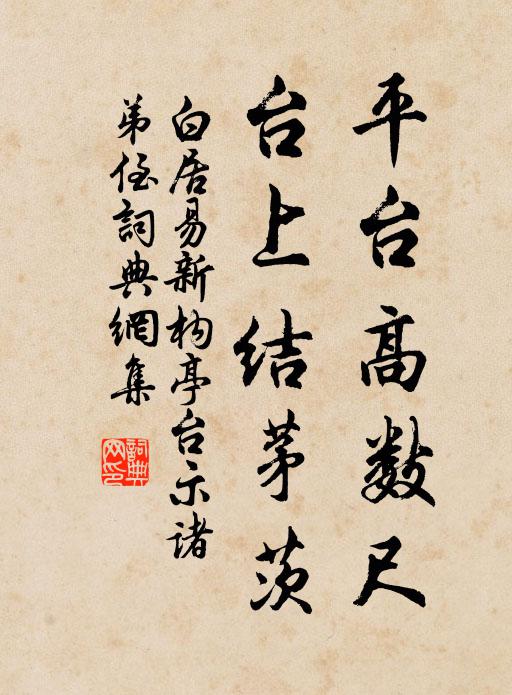 平台高数尺
台上结茅茨
白居易新构亭台示诸
弟侄詞典網集
詞典網印